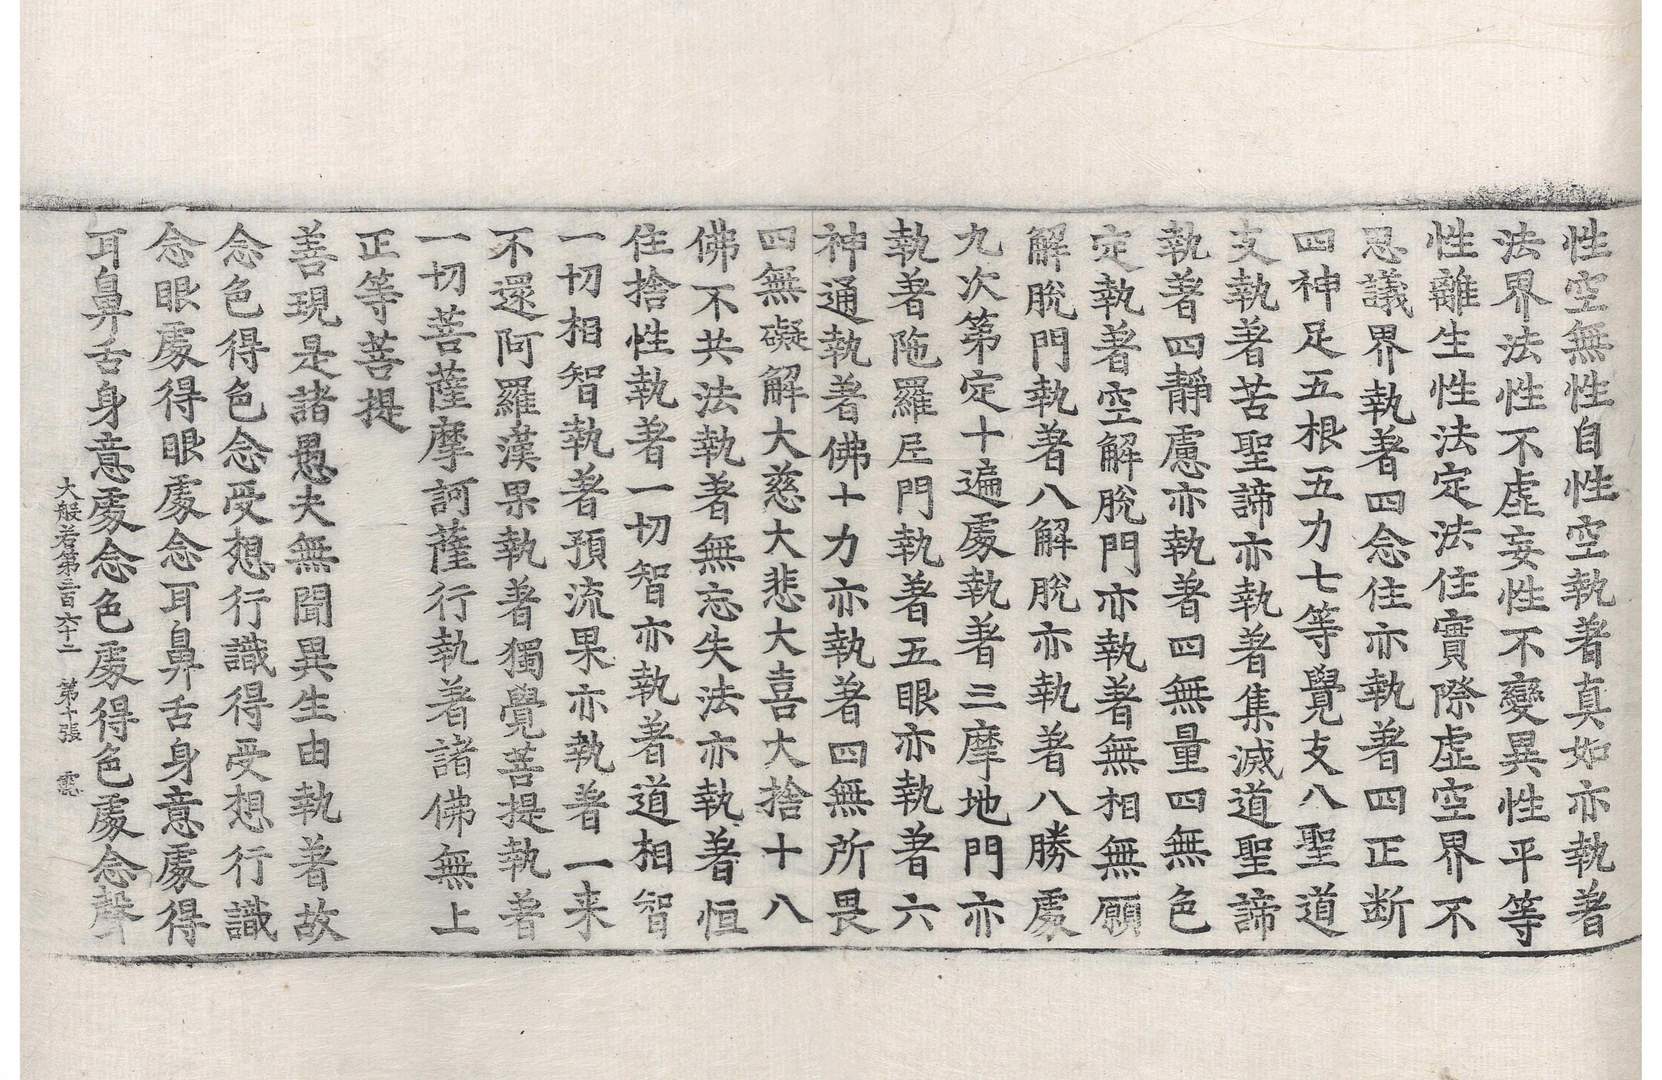 性空無性自性空執著真如亦執著
法界法性不虛妄性不變異性平等
性離生性法定法住實際虛空界不
思議界執著四念住亦執著四正断
四神足五根五力七等覺支八聖道
支執著苦聖諦亦執著集滅道聖諦
執著四靜慮亦執著四無量四無色
定執著空解脫門亦執著無相無願
解脫門執著八解脫亦執著八勝處
九次第定十遍處執著三摩地門亦
執著陁羅尼門執著五眼亦執著六
神通執著佛十力亦執著四無所畏
四無礙解大慈大悲大喜大捨十八
佛不共法執著無忘失法亦執著恒
住捨性執著一切智亦執著道相智
一切相智執著預流果亦執著一来
不還阿羅漢果執著獨覺菩提執著
一切菩薩摩訶薩行執著諸佛無上
正等菩提
善現是諸愚夫無聞異生由執著故
念色得色念受想行識得受想行識
念眼處得眼處念耳鼻舌身意處得
耳鼻舌身意處念色處得色處念聲
大般若第三百六十二 第十張